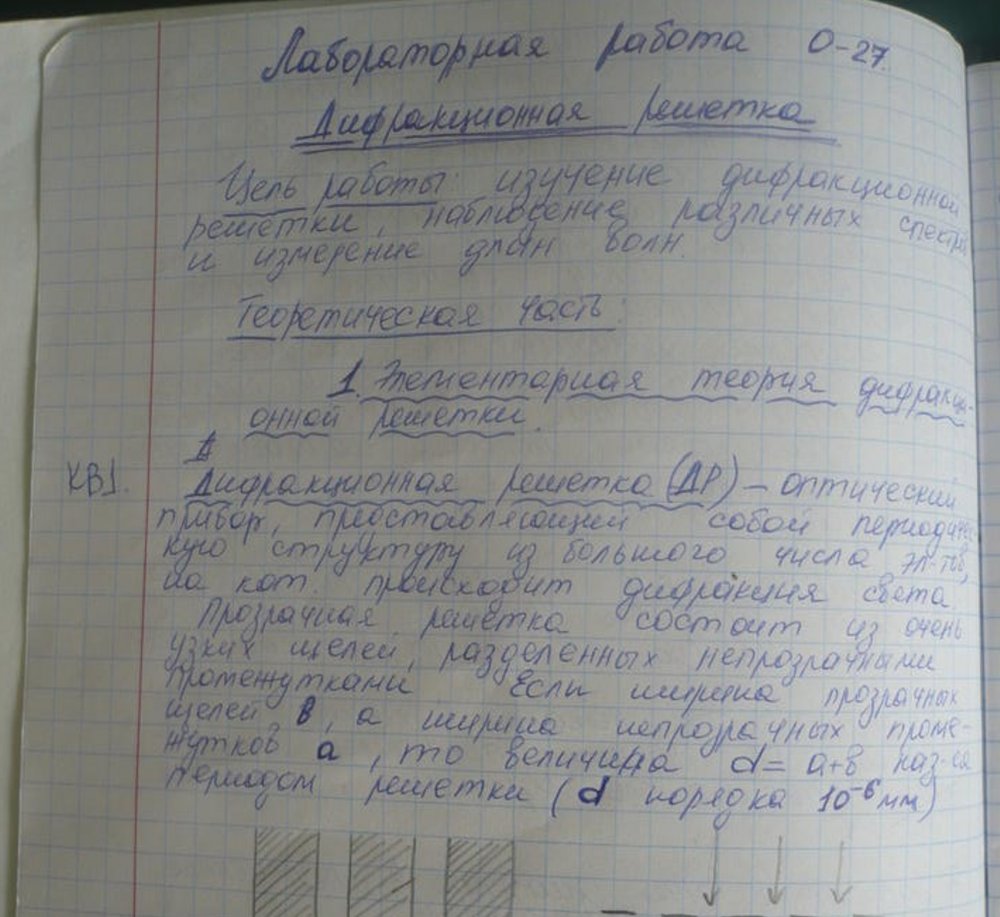 Лабораторная работа О-27.
Дифракционная решетка
Цель работы: изучение дифракционной
решетки, наблюдение различных спектров
и измерение длин волн.
Теоретическая часть:
1. Элементарная теория дифракци-
онной решетки.
КВ1. Дифракционная решетка (ДР) – оптический
прибор, представляющий собой периодичес
кую структуру из большого числа эл-тов,
на кот. происходит дифракция света.
Прозрачная решетка состоит из очень
узких щелей, разделенных непрозрачными
промежутками. Если ширина прозрачных
щелей в, а ширина непрозрачных проме-
жутков а, то величина d = а+в наз-ся
периодом решетки (d порядка 10⁻⁶ мм)